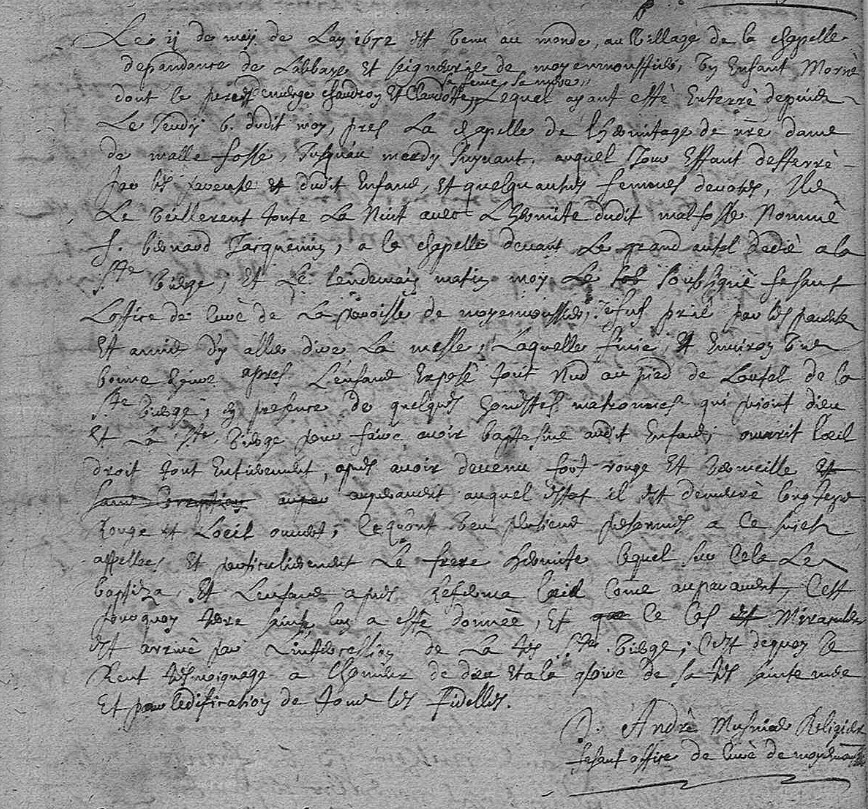 Le ij de may de Lan 1672 est venu au monde, au village de la chapelle
dependance de Labbaye et seigneurie de moyenmoustier, un Enfant Morné
sa femme, sa mere
dont le pere est demenge chaudron et Claudotte, Lequel ayant esté Enterré depuis
Le Jeudy 6. dudit moy, pres La chapelle de Lhermitage de nre dame
de malle fosse, Jusquau mardy suyvant, auquel Jour Estant desterré
par les parents dudit Enfant, et quelquautres femmes devotes, Ils
Le veillerent toute La Nuit avec L'hermite dudit malfosse Nommé
f. bernard Jacquemin, a la chapelle devant Le grand autel dedié a la
Ste vierge, et Le lendemain matin moy Le soubsigné fesant
Loffice de Curé de La paroisse de moyenmoustier, Je fus prié par les parents
Et amis dy aller dire La messe, Laquelle finie, et Environ une
bonne heure apres L'enfant Exposé tout Nud au pied de Lautel de la
Ste vierge, en presence de quelques honestes matronnes qui prioint dieu
et La Ste vierge pour faire avoir baptesme audit Enfant, ouvrit Lœil
droit tout Entierement, apres avoir devenu fort rouge et vermeille et
auparavant auquel estat il est demeuré longtemps
Rouge et Loeil ouvert, Ce qu'ont veu plusieurs personnes a ce sujet
appellees, et particulierement Le frere hermite lequel sur Cela Le
baptiza, et Lenfant apres Referma Lœil Come auparavant, C'est
pourquoy terre sainte luy a esté donnée, et que Ce Cas est Miraculeux
est arrivé par L'intercession de La tres Ste vierge, C'est dequoy Je
Rent tesmoignage a Lhonneur de dieu et a la gloire de sa tres sainte mere
Et pour Ledification de tous les fidelles.
D. André Religieux
fesant office de Curé de moyenmoustier